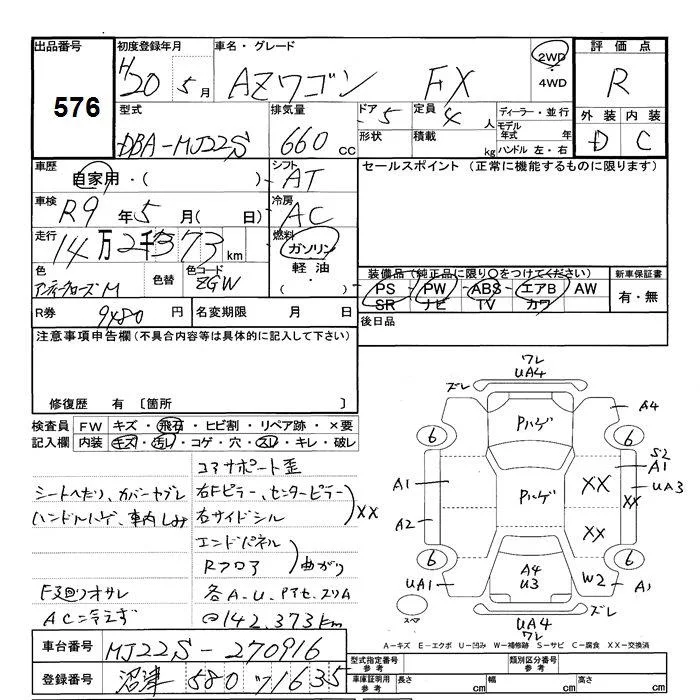 出品番号 初度登録年月 車名・グレード 2WD 4WD 評価点
576 H20 5月 AZワゴン FX R
型式 排気量 ドア 5 定員 4人 ディーラー・並行 外装 内装
DBA-MJ22S 660cc 形状 積載 kg モデル年式 年 ハンドル 左・右 D C
車歴 自家用・( ) シフト AT セールスポイント (正常に機能するものに限ります)
車検 R9年5月( 日) 冷房 AC
走行 14万2千373km 燃料 ガソリン 軽油・( )
色 M 色替 色コード ZGW
装備品(純正品に限り○をつけてください) 新車保証書
PS PW ABS エアB AW 有・無
SR ナビ TV カワ
R券 9480円 名変期限 月 日 後日品
注意事項申告欄(不具合内容等は具体的に記入して下さい)
修復歴 有 〔箇所 〕
検査員 FW キズ・飛石・ヒビ割・リペア跡・×要
記入欄 内装 キズ・汚れ・コゲ・穴・スレ・キレ・破レ
コアサポート歪
シートヘたり、カバーヤブレ 右Fピラー、センターピラー
ハンドルハゲ、車内しみ 右サイドシル XX
エンドパネル
Rフロア 曲がり
F3回りオサレ 各A.U.
AC冷えず @142,373km
ワレ
UA4
ズレ
A4
Pハゲ
6 6
S2
A1 A1
Pハゲ XX UA3
XX
A2 XX
6 6
A4
U3
UA1 W2 A1
ズレ
スペア UA4
ワレ
A=キズ E=エクボ U=凹み W=補修跡 S=サビ C=腐食 XX=交換済
車台番号 MJ22S-270916
登録番号 沼津 580 ワ1635
型式指定番号 参考 類別区分番号 参考
車庫証明用 参考 長さ cm 幅 cm 高さ cm